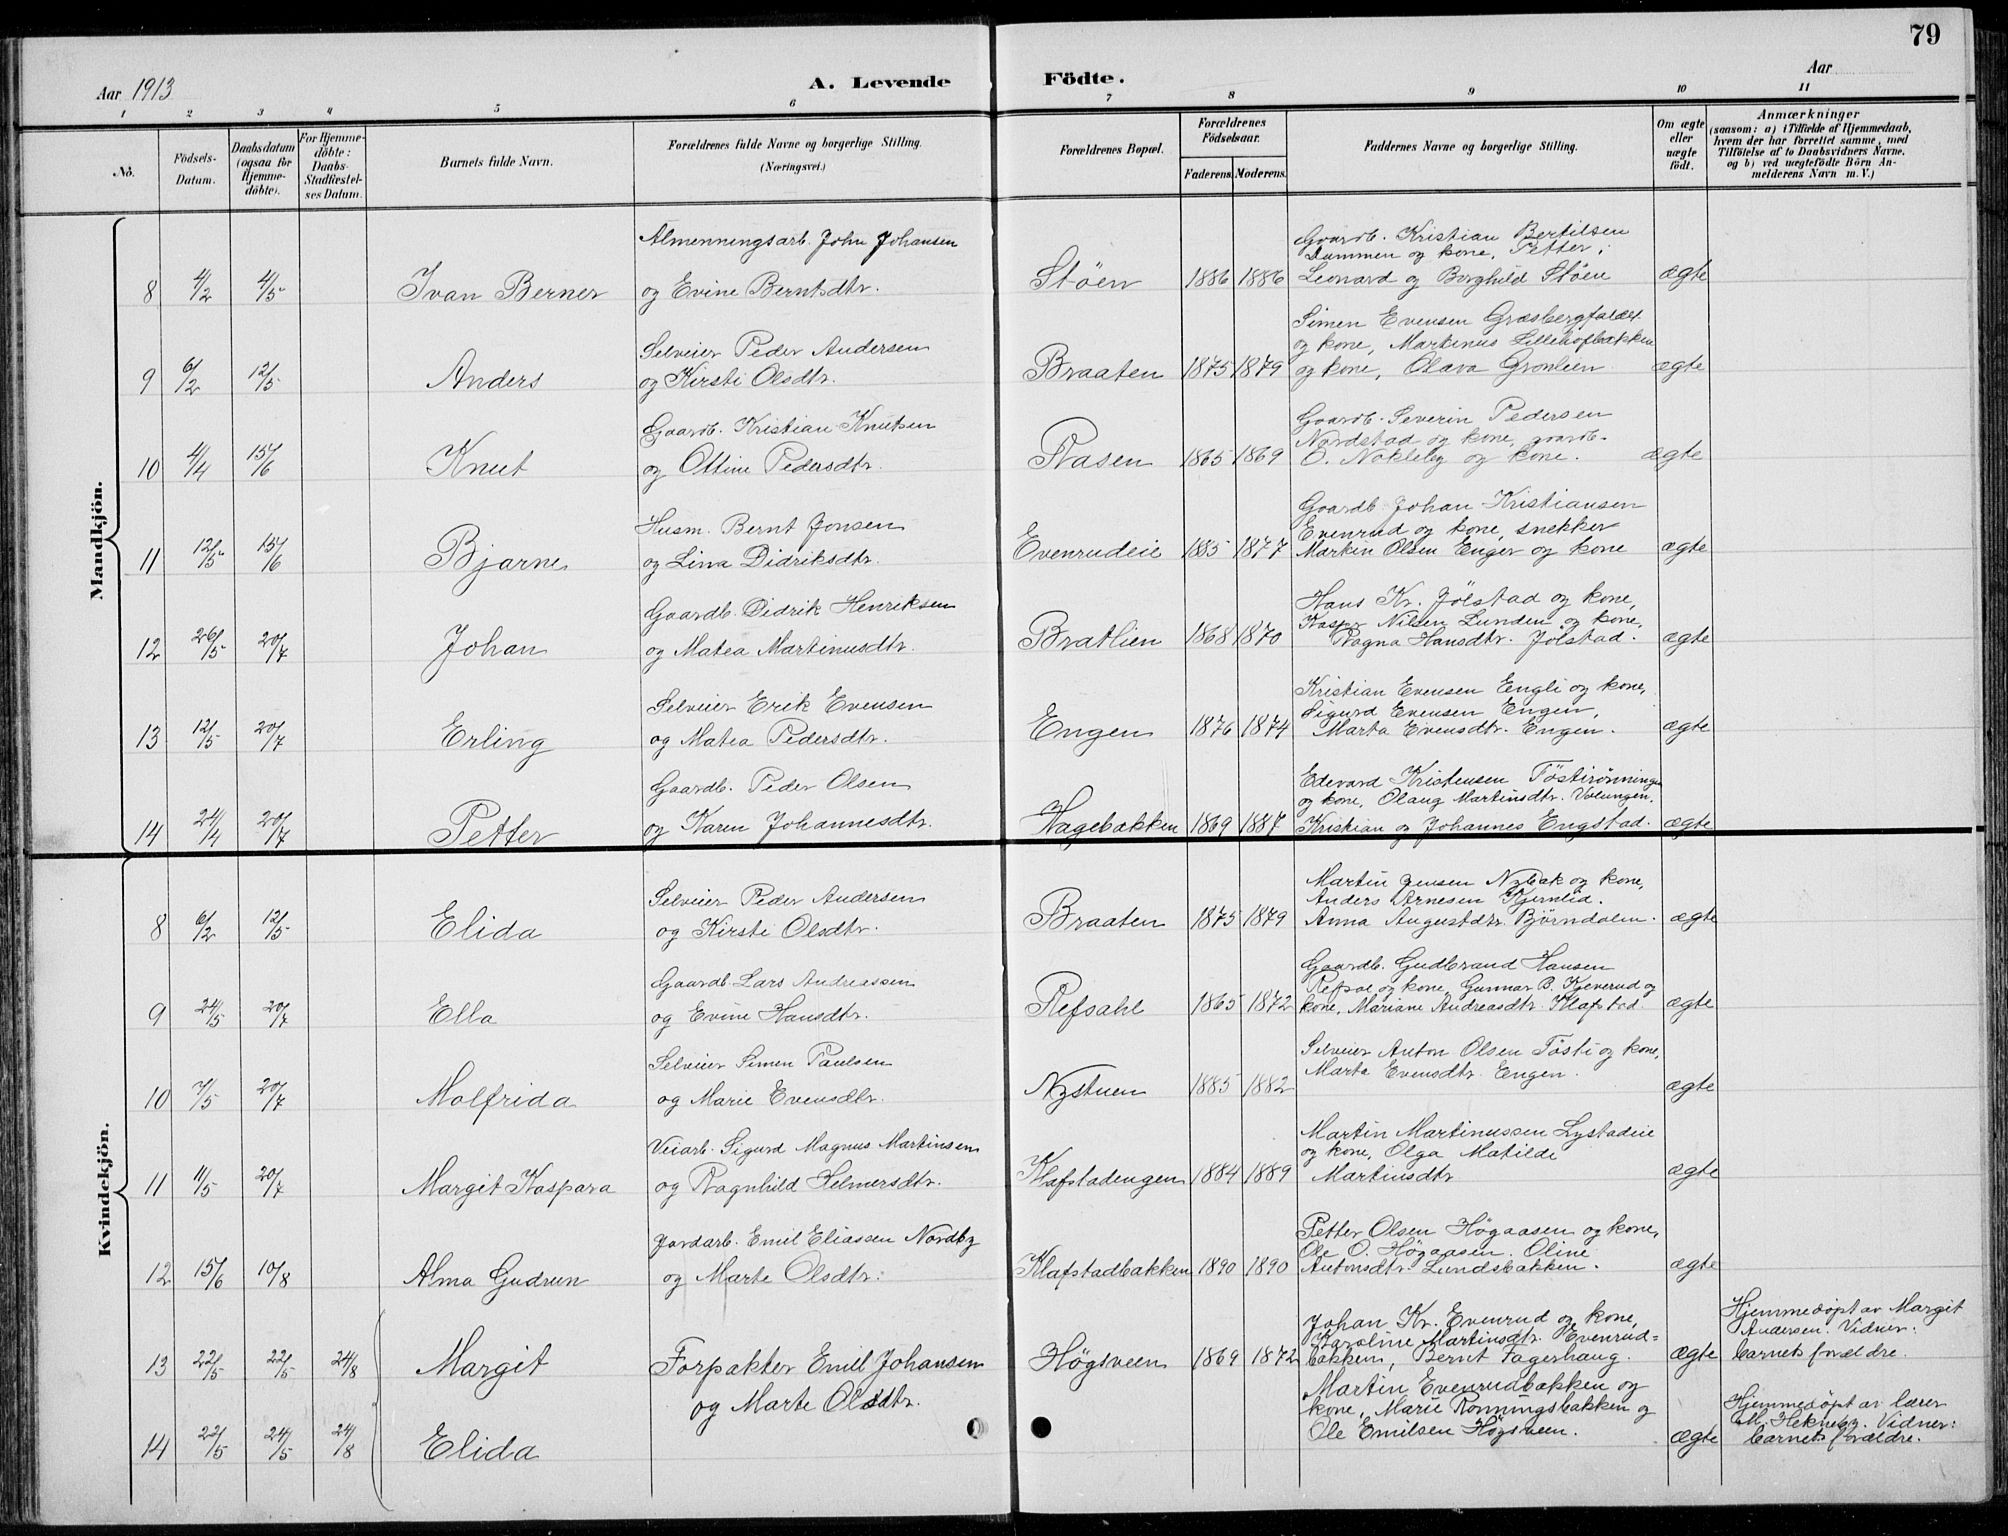 79
Aar 1913
A. Levende
Födte.
Aar
1 2 3 4 5 6 7 8 9 10 11
No.
Födsels-Datum.
Daabsdatum (ogsaa for Hjemme-döbte).
For Hjemme-döbte: Daabs-Stadfæstel-ses Datum.
Barnets fulde Navn.
Forældrenes fulde Navne og borgerlige Stilling. (Næringsvei.)
Forældrenes Bopæl.
Forældrenes Födselsaar.
Faderens. Moderens.
Faddernes Navne og borgerlige Stilling.
Om ægte eller uægte födt.
Anmærkninger
(saasom: a) i Tilfælde af Hjemmedaab, hvem der har forrettet samme, med Tilföielse af to Daabsvidners Navne, og b) ved uægtefödte Börn An-melderens Navn m. V.)
Mandkjön.
8 4/2 4/5 Ivan Berner
Almenningsarb. John Johansen
og Evine Berntsdtr.
Støen 1886 1886
Gaardb. Kristian Bertilsen
Dammen og kone, Petter,
Leonard og Borghild Støen
ægte
9 6/2 12/5 Anders
Selveier Peder Andersen
og Kirsti Olsdtr.
Braaten 1875 1879
Simen Evensen Græsbergfaldet
og kone, Martinus Lillehofbakken
og kone, Olava Gronlien
ægte
10 4/4 15/6 Knut
Gaardb. Kristian Knutsen
og Ottine Pedersdtr.
Rasen 1865 1869
Gaardb. Severin Pedersen
Nordstad og kone, gaardb.
O. Nokleby og kone.
ægte
11 12/5 15/6 Bjarne
Husm. Bernt Jonsen
og Lina Didriksdtr.
Evenrudeie 1885 1877
Gaardb. Johan Kristiansen
Evenrud og kone, snekker
Martin Olsen Enger og kone
ægte
12 26/5 20/7 Johan
Gaardb. Didrik Henriksen
og Matea Martinusdtr.
Bratlien 1868 1870
Hans Kr. Jølstad og kone,
Kaspr Nilsen Lunden og kone,
Ragna Hansdtr. Jølstad.
ægte
13 12/5 20/7 Erling
Selveier Erik Evensen
og Matea Pedersdtr.
Engen 1876 1874
Kristian Evensen Engli og kone,
Sigurd Evensen Engen,
Marta Evensdtr. Engen.
ægte
14 24/4 20/7 Petter
Gaardb. Peder Olsen
og Karen Johannesdtr.
Hagebakken 1869 1887
Edevard Kristensen Töstirönningen
og kone, Olaug Martinsdtr. Volungen,
Kristian og Johannes Engstad.
ægte
Kvindekjön.
8 6/2 12/5 Elida
Selveier Peder Andersen
og Kirsti Olsdtr.
Braaten 1875 1879
Martin Jensen Nybak og kone,
Anders Arnesen Kjernlid.
Anna Augustdtr. Björndalen.
ægte
9 24/5 20/7 Ella
Gaardb. Lars Andreassen
og Evine Hansdtr.
Refsahl 1865 1872
Gaardb. Gudbrand Hansen
Refsal og kone, Gunnar B. Kjeverud og
kone, Mariane Andreasdtr. Klafstad
ægte
10 7/5 20/7 Molfrida
Selveier Simen Paulsen
og Marie Evensdtr.
Nystuen 1885 1882
Selveier Anton Olsen Tösti og kone,
Marta Evensdtr. Engen.
ægte
11 11/5 20/7 Margit Kaspara
Veiarb. Sigurd Magnus Martinsen
og Ragnhild Helmersdtr.
Klafstadengen 1884 1889
Martin Martinussen Lystadeie
og kone, Olga Matilde
Martinsdtr
ægte
12 15/6 10/8 Alma Gudrun
Jordarb. Emil Eliassen Nordby
og Marte Olsdtr.
Klafstadbakken 1890 1890
Petter Olsen Høgaasen og kone,
Ole O. Høgaasen. Oline
Antonsdtr. Lundsbakken.
ægte
13 22/5 22/5 24/8 Margit
Forpakter Emil Johansen
og Marte Olsdtr.
Høgsveen 1869 1872
Johan Kr. Evenrud og kone,
Karoline Martinsdtr. Evenrud=
bakken, Bernt Fagerhaug.
ægte
Hjemmedøpt av Margit
Andersen. Vidner:
barnets forældre.
14 22/5 24/5 24/8 Elida
Martin Evenrudbakken og
kone, Marie Rønningsbakken og
Ole Emilsen Høgsveen.
ægte
Hjemmedøpt av lærer
M. Hekneby. Vidner:
barnets forældre.